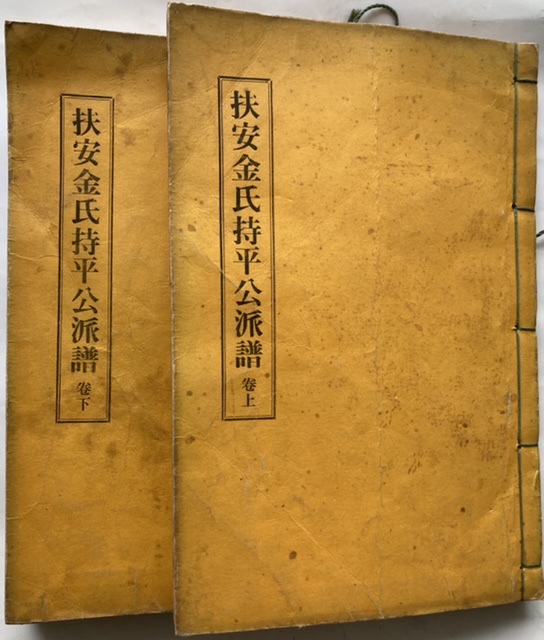 扶安金氏持平公派譜 卷上
扶安金氏持平公派譜 卷下